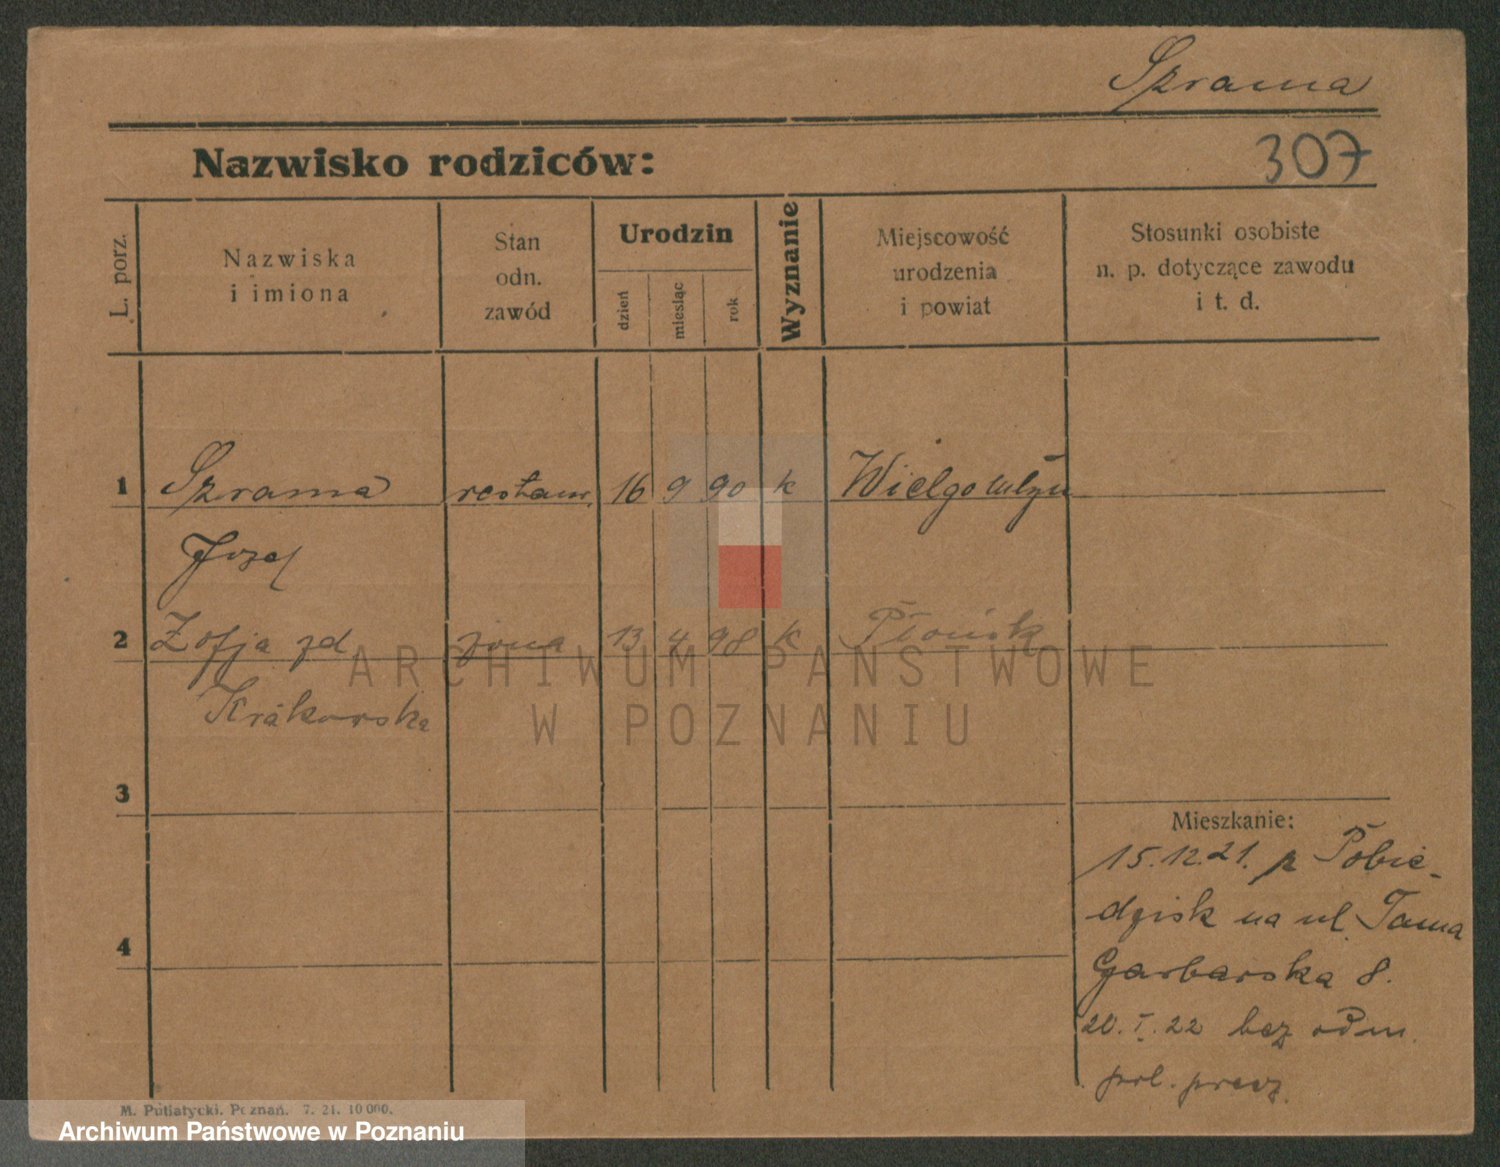 Szrama
307
Nazwisko rodziców:
L. porz.
Nazwiska
i imiona
Stan
odn.
zawód
Urodzin
dzień
miesiąc
rok
Wyznanie
Miejscowość
urodzenia
i powiat
Stosunki osobiste
n. p. dotyczące zawodu
i t. d.
1 Szrama restaur. 16 9 90 k
Józef
2 Zofja zd żona 13 4 98 k Płońsk
Krakowska
3
4
Mieszkanie:
15.12.21. z Pobie-
dzisk na ul. Tama
Garbarska 8.
20.I.22 bez odm.
pol. precz.
ARCHIWUM PAŃSTWOWE
W POZNANIU
M. Putiatycki, Poznań. 7. 21. 10000.
Archiwum Państwowe w Poznaniu